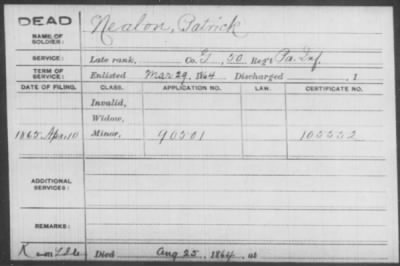 DEAD
NAME OF SOLDIER: Nealon, Patrick
SERVICE: Late rank, Co. G, 50 Reg't Pa. Inf.
TERM OF SERVICE: Enlisted Mar 29, 1864 Discharged , 1
DATE OF FILING. CLASS. APPLICATION NO. LAW. CERTIFICATE NO.
Invalid,
Widow,
1865 Apr. 10 Minor, 90501 105552
ADDITIONAL SERVICES:
REMARKS:
Died Aug 25, 1864, at